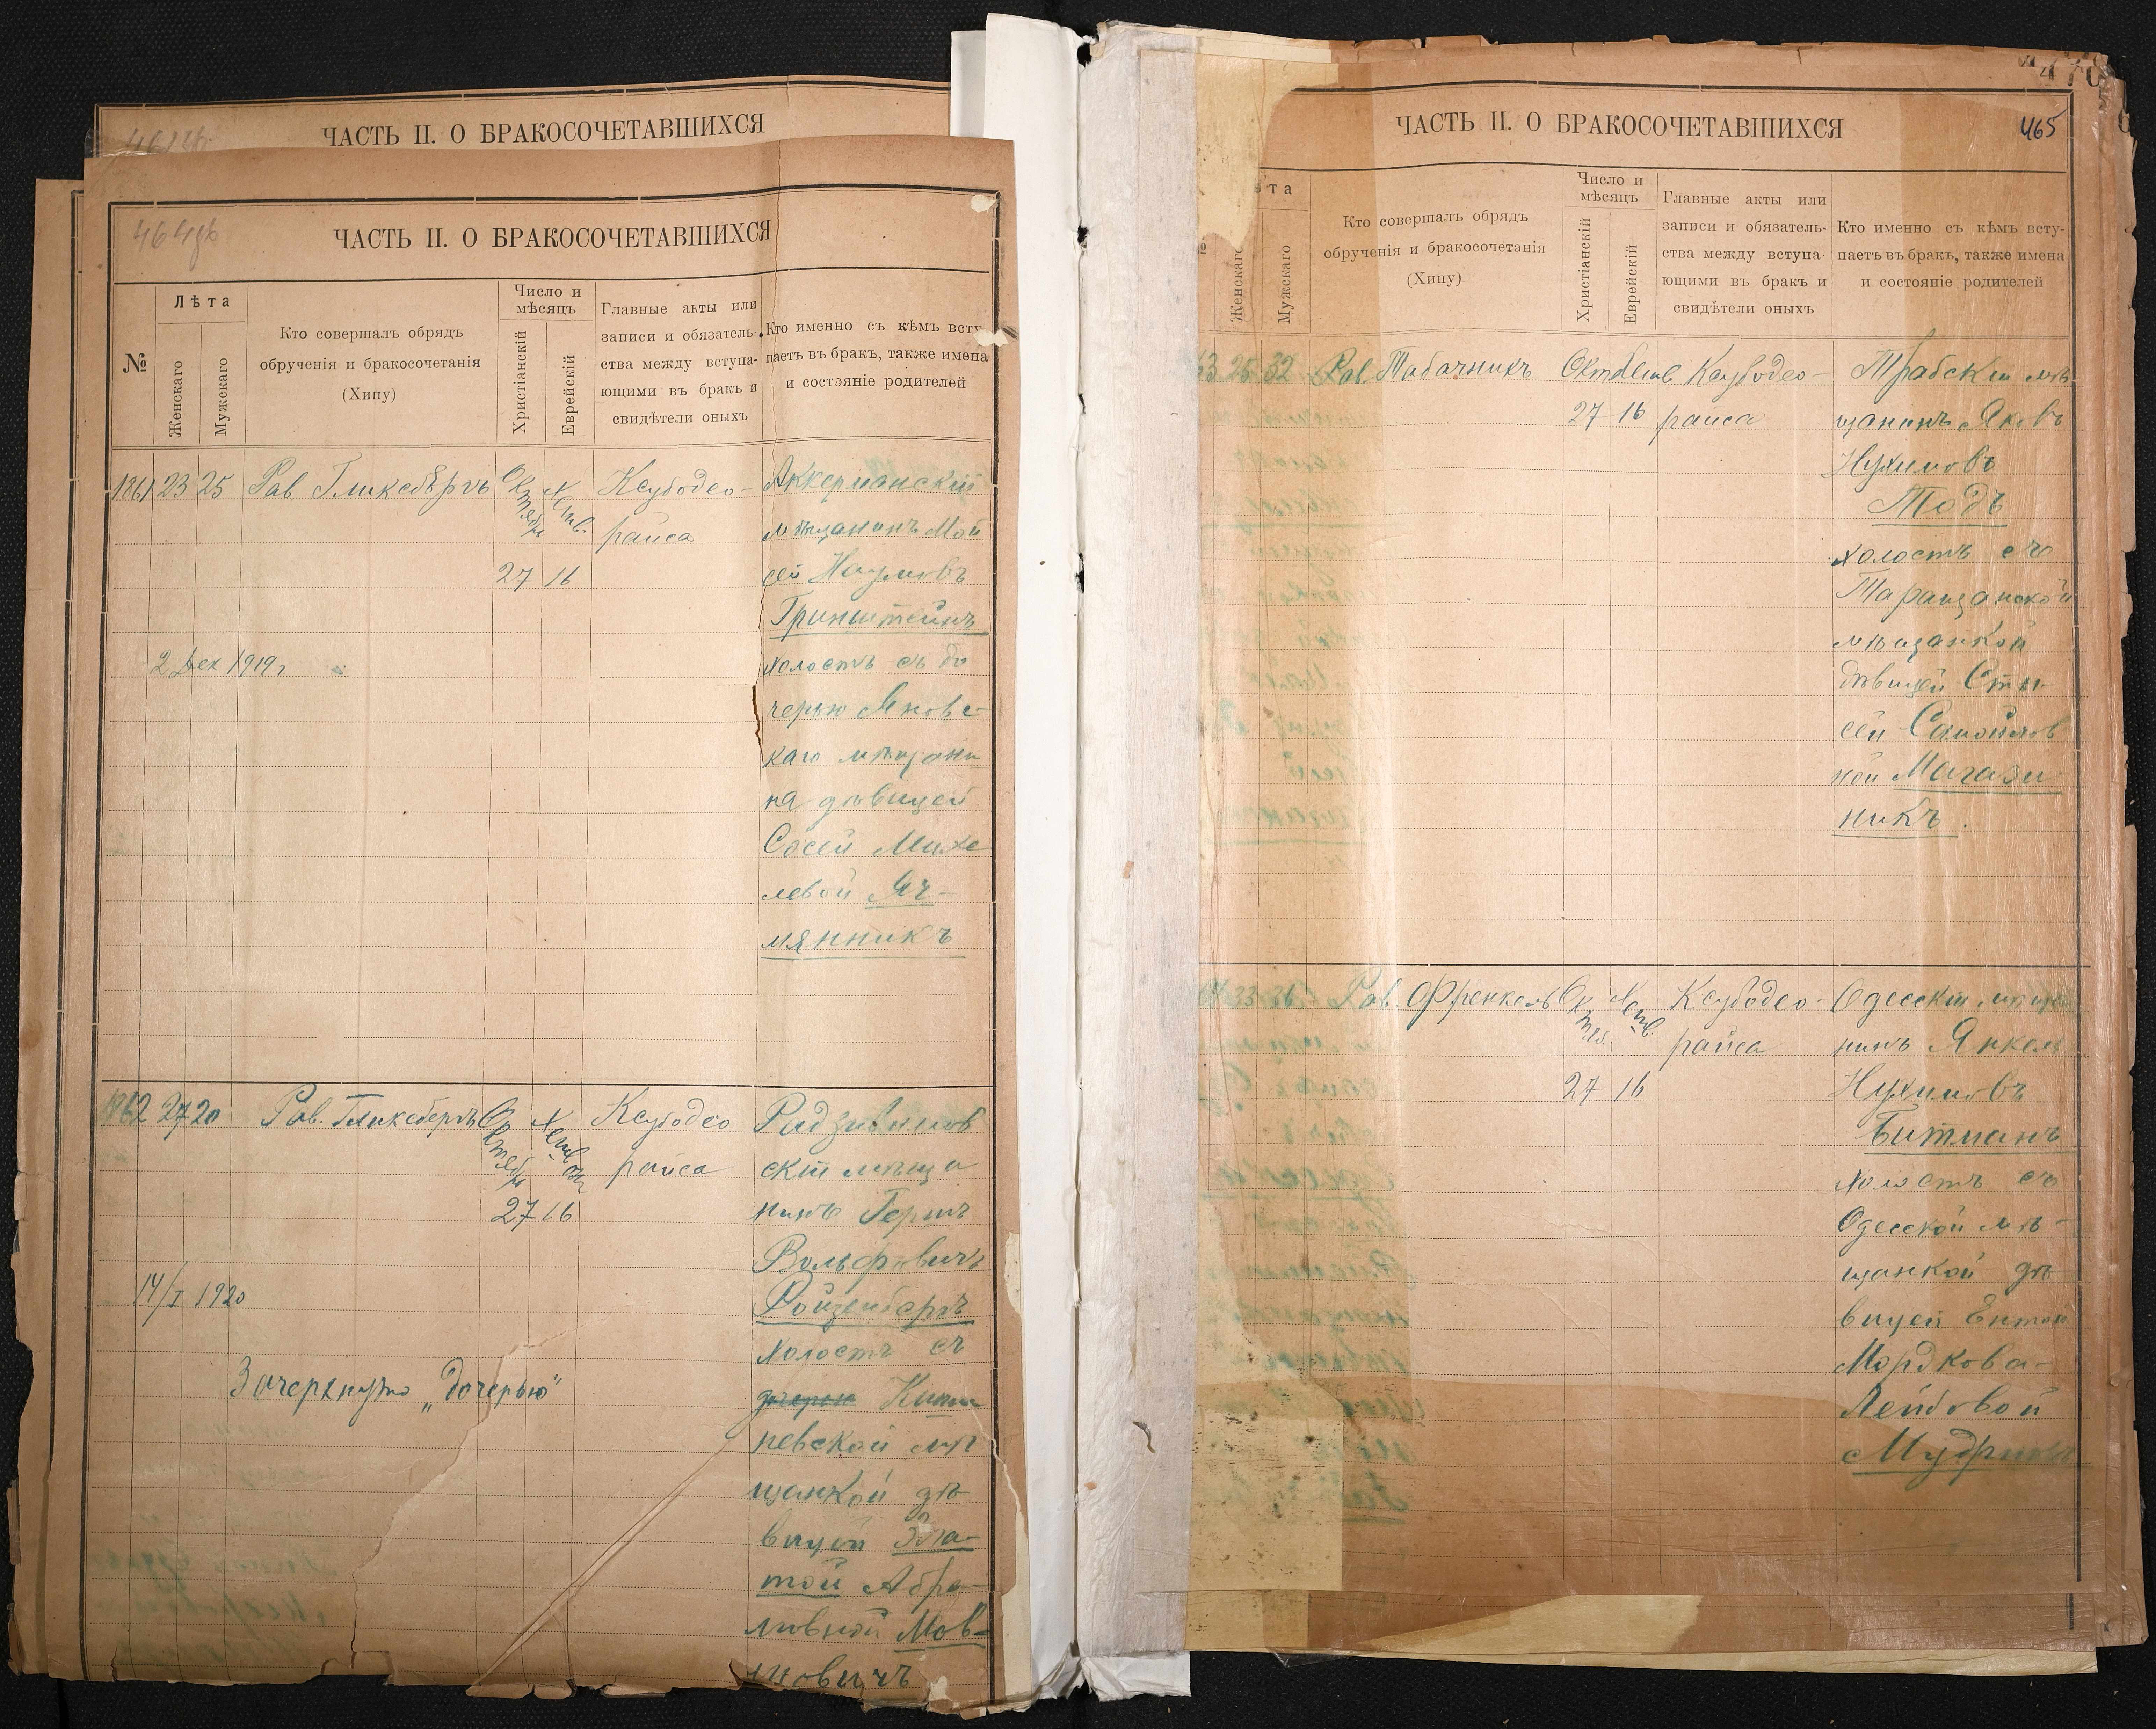 ЧАСТЬ II. О БРАКОСОЧЕТАВШИХСЯ
ЧАСТЬ II. О БРАКОСОЧЕТАВШИХСЯ
№
Лѣта
Женскаго
Мужскаго
Кто совершалъ обрядъ
обрученія и бракосочетанія
(Хипу)
Число и
мѣсяцъ
Христіанскій
Еврейскій
Главные акты или
записи и обязатель-
ства между вступа-
ющими въ бракъ и
свидѣтели оныхъ
Кто именно съ кѣмъ всту-
паетъ въ бракъ, также имена
и состояніе родителей
1861 23 25 Рав Гликсбергъ
Октября
Хешв.
27 16
Ксубодео-
раиса
Аккерманскій
мѣщанинъ Мой
сей Наумовъ
Гринштейнъ
холостъ съ до
черью Яновс-
каго мѣщани
на дѣвицей
Сосей Михе
левой Яч-
мянникъ
2 Дек 1919г
1862 27 20 Рав. Гликсбергъ
Октября
27 16
Ксубодео
раиса
Радзивилов
скій мѣща
нинъ Герш
Вольфовичъ
Ройзенбергъ
холостъ съ
дочерью Киши
невской мѣ
щанкой дѣ
вицей Зла-
той Абра-
мовной Мов-
шовичъ
14/I 1920
Зачеркнуто „дочерью"
ЧАСТЬ II. О БРАКОСОЧЕТАВШИХСЯ
465
ѣта
Женскаго
Мужскаго
Кто совершалъ обрядъ
обрученія и бракосочетанія
(Хипу)
Число и
мѣсяцъ
Христіанскій
Еврейскій
Главные акты или
записи и обязатель-
ства между вступа-
ющими въ бракъ и
свидѣтели оныхъ
Кто именно съ кѣмъ всту-
паетъ въ бракъ, также имена
и состояніе родителей
63 25 32 Рав. Табачникъ
27 16
Ксубодео-
раиса
Трабскій мѣ
щанинъ Яковъ
Нухимовъ
Тодъ
холостъ съ
Таращанской
мѣщанкой
дѣвицей Сти-
сей Самойлов
ной Магази
никъ.
64 33 36 Рав. Френкель
Октяб.
Хешв.
27 16
Ксубодео-
раиса
Одесскій мѣща
нинъ Янкель
Нухимовъ
Битманъ
холостъ съ
Одесской мѣ-
щанкой дѣ
вицей Ентой
Мордкова-
Лейбовой